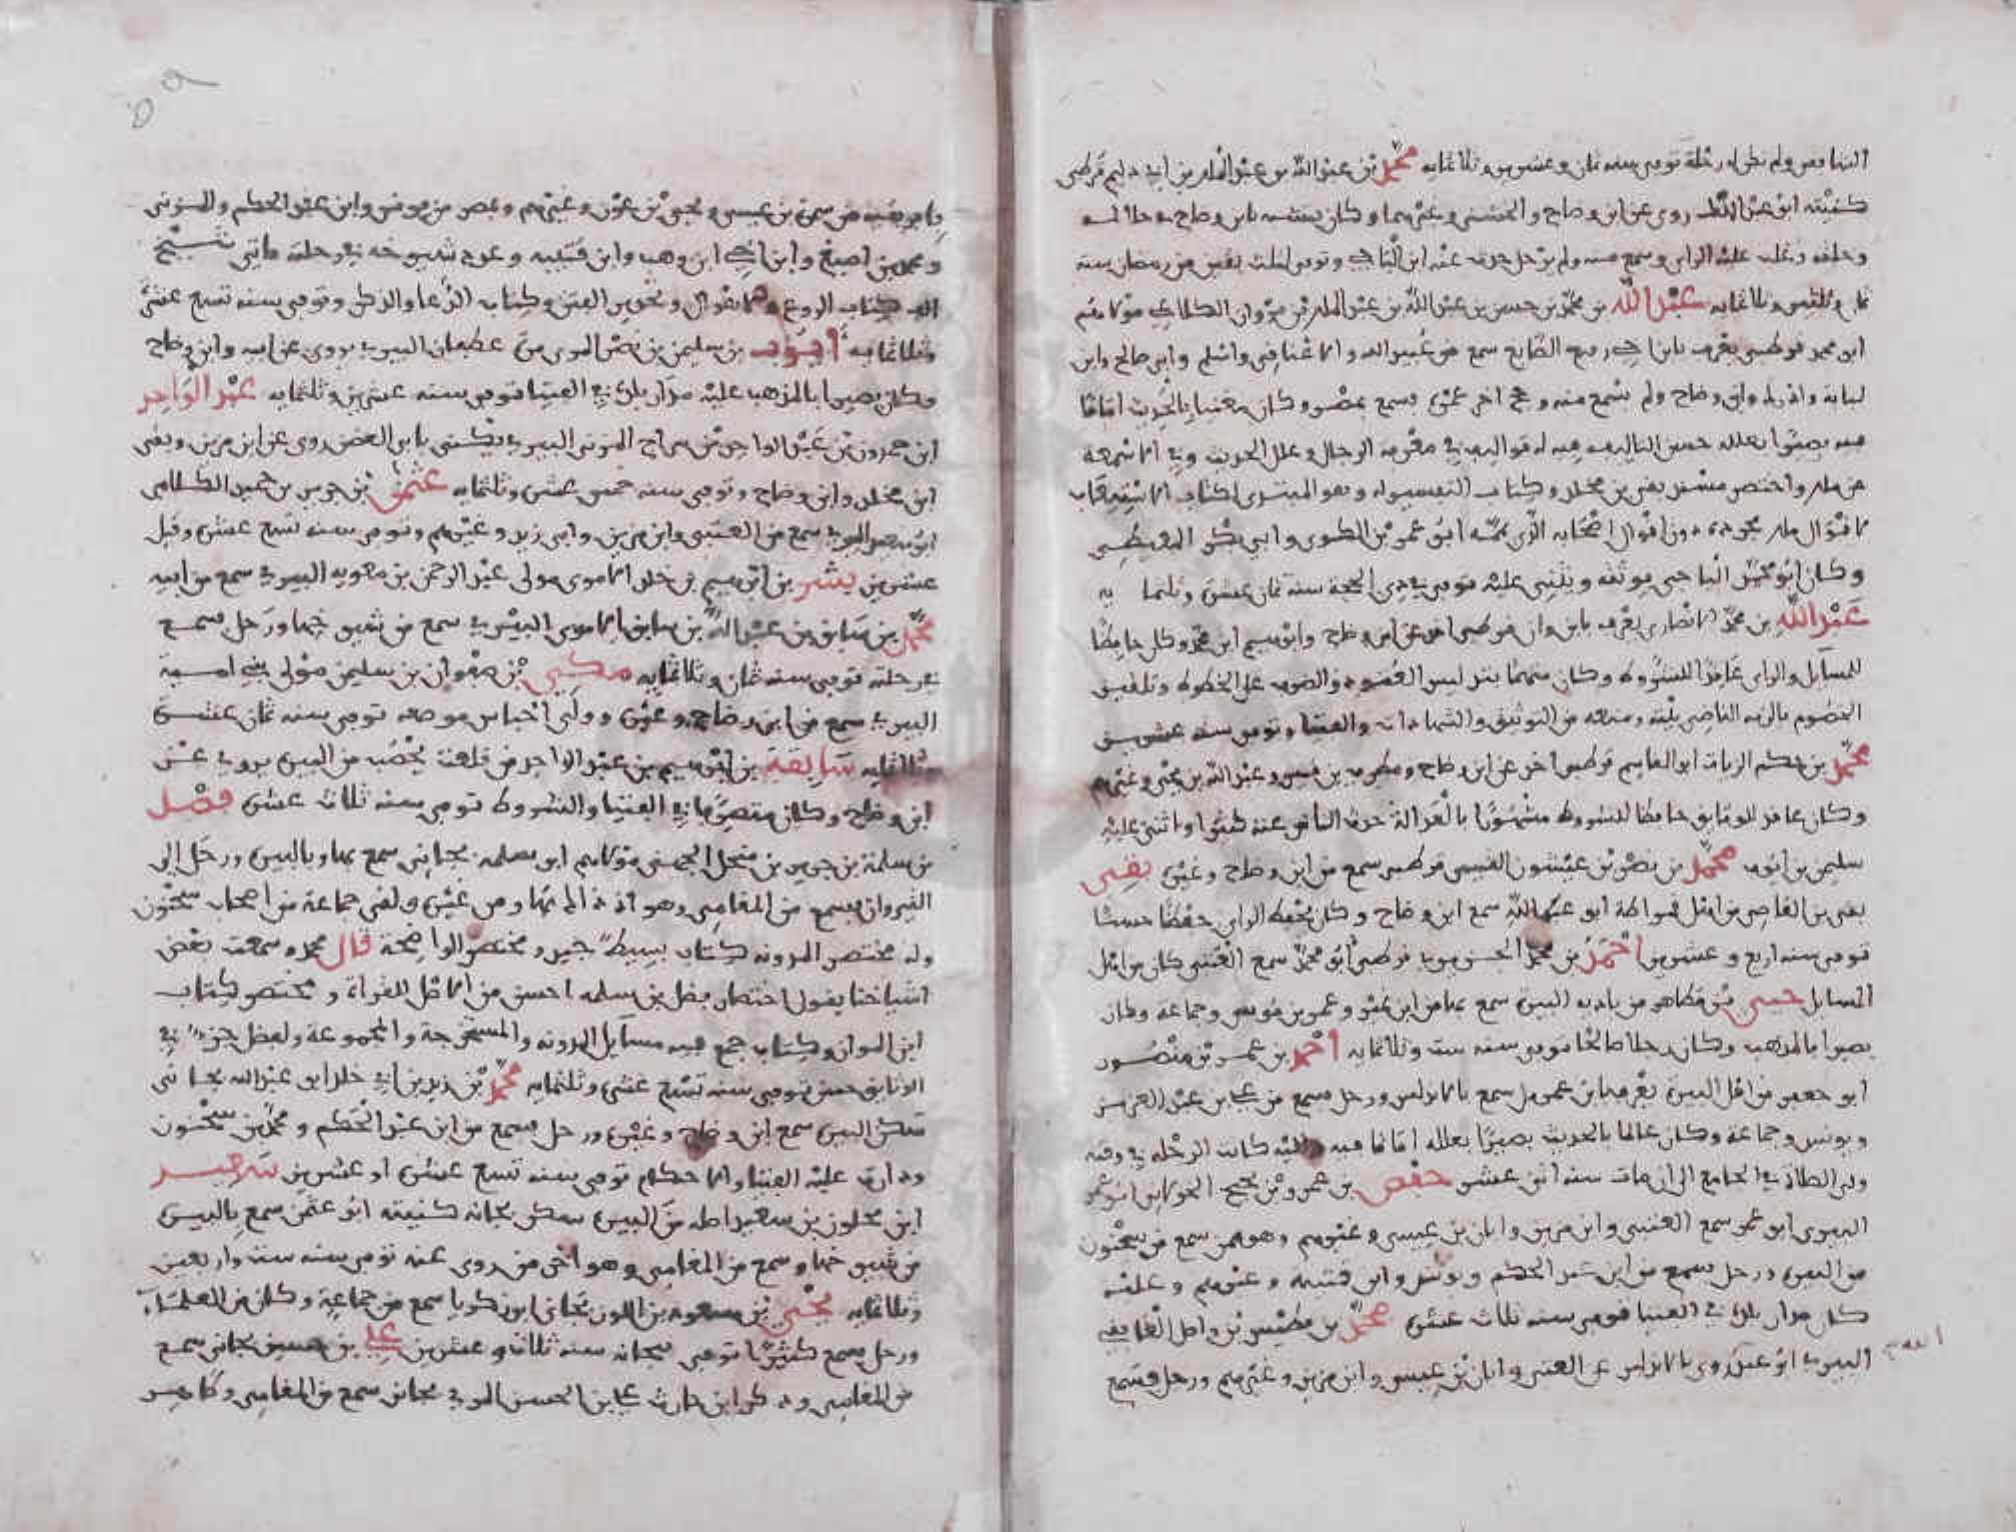 الشافعي ولم تكن له رحلة توفي سنه ثمان وعشرين وثلاثمايه محمد بن عبد الله بن عبد الملك بن ابي دليم قرطبي
كنيته ابو عبد الملك روى عن ابن وضاح والخشني وغيرهما وكان يتشبه بابن وضاح في حلا له
وخلقه وغلب عليه الراي وسمع منه ولم يرحل حدث عنه ابن الباجي وتوفي لثلث بقين من رمضان سنه
ثمان وثلثين وثلاثمايه عبد الله بن محمد بن حسن بن عبد الله بن عبد الملك بن مروان الكلاعي مولاهم
ابو محمد قرطبي يعرف بابن اخي ربيع الصايغ سمع من عبيد الله والاعناقي واسلم وابي صالح وابن
لبابة وادرك وابن وضاح ولم يسمع منه وحج اخر عمره فسمع بمصر وكان معتنيا بالحديث اماما
فيه بصيرا بعلله حسن التاليف فيه له تواليف في معرفة الرجال وعلل الحديث وفي الاسمعة
عن ملك واختصر مسند بقي بن مخلد وكتاب التفسير له وهو المبتدي لكتاب الاستيعاب
لاقوال ملك مجردة دون اقوال اصحابه الذي تممه ابو عمر بن المكوي وابي بكر المعيطي
وكان ابو محمد الباجي يوثقه ويثني عليه توفي في ذي الحجة سنه ثمان عشرة وثلثما يه
عبد الله بن محمد الانصاري يعرف بابن وان قرطبي اخذ عن ابن وضاح وابرهيم ابن محمد وكان حافظا
للمسايل والراي عاقدا للشروط وكان متهما بتدليس العقود والضرب على الخطوط وتلقين
الخصوم بالزمه القاضي بيته ومنعه من التوثيق والشهادات والفتيا وتوفي سنه عشرين
محمد بن حكم الزيات ابو القاسم قرطبي اخذ عن ابن وضاح ومطرف بن قيس وعبد الله بن يحيى وغيرهم
وكان عاقدا للوثايق حافظا للشروط مشهورا بالعدالة حدث الناس عنه كثيرا واثنى عليه
سليمن بن ايوب محمد بن نصر بن عيشون القيسي قرطبي سمع من ابن وضاح وغيره بقي
بقي بن العاصي من اهل قرطبة ابو عبد الله سمع ابن وضاح وكان يحفظ الراي حفظا حسنا
توفي سنه اربع وعشرين احمد بن محمد قرطبي ابو محمد سمع العتبي كان من اهل
المسايل حسين بن من باديه البيره سمع بها من ابن نمير وعمر بن موسى وجماعة وكان
بصيرا بالمذهب وكان رجلا صالحا توفي سنه ست وثلاثمايه احمد بن عمرو بن منصور
ابو جعفر من اهل البيرة يعرف بابن عمريل سمع بالاندلس ورحل فسمع من علي بن عبد العزيز
ويونس وجماعة وكان عالما بالحديث بصيرا بعلله اماما فيه واليه كانت الرحله في وقته
ولي الصلاة في الجامع الى ان مات سنه اثنى عشر حفص بن عمرو بن نجيح الخولاني ابو عمر
البيري ابو عمر سمع العتبي وابن مزين وابان بن عيسى وغيرهم وهو ممن سمع من سحنون
من البيرة ورحل فسمع من ابن عبد الحكم ويونس وابن قتيبه وغيرهم وعليه
كان مدار بلده في الفتيا توفي سنه ثلاث عشرة محمد بن فطيس بن واصل الغافقي
البيري ابو عبد الله روى بالاندلس عن العتبي وابان بن عيسى وابن مزين وغيرهم ورحل فسمع
بافريقيه من سمرة بن عيسى ويحيى بن عون وغيرهم وبمصر من يونس وابن عبد الحكم والمزني
ومحمد بن اصبغ وابن اخي ابن وهب وابن قتيبه وعدد شيوخه في رحلته مايتي شيخ
الف كتاب الروع والاهوال وتحذير الفتن وكتاب الدعا والذكر وتوفي سنه تسع عشرة
وثلاثمايه ايوب بن سليمن بن نصر المري من غطفان البيري يروي عن ابيه وابن وضاح
وكان بصيرا بالمذهب عليه مدار بلده في الفتيا توفي سنه عشرين وثلثمايه عبد الواحد
ابن حمدون بن عبد الواحد بن سراج المزني البيري يكنى بابي الغصن روى عن ابن مزين وبقي
ابن مخلد وابن وضاح وتوفي سنه خمس عشرة وثلثمايه عثمن بن جرير بن حميد الكلابي
ابو سعيد البيري سمع من العتبي وابن مزين وابي زيد وغيرهم وتوفي سنه تسع عشرة وقيل
عشرين بشر بن ابرهيم بن خلد الاموي مولى عبد الرحمن بن معويه البيري سمع من ابيه
محمد بن سابق بن عبد الله بن سابق الاموي البيري سمع من شيوخها ورحل فسمع
في رحلته توفي سنه ثمان وثلاثمايه مكي بن صفوان بن سليمن مولى بني امية
البيري سمع من ابن وضاح وغيره وولي احباس موضعه توفي سنه ثمان عشرة
وثلاثمايه سابقة بن ابرهيم بن عبد الواحد من قلعة يحصب من البيره يروي عن
ابن وضاح وكان متصرفا في الفتيا والشروط توفي سنه ثلاث عشرة فضل
بن سلمة بن جرير بن منخل الجهني مولاهم ابو سلمه بجاني سمع بها وبالبيرة ورحل الى
القيروان فسمع من المغامي وهو اذ ذاك بها ومن غيره ولقي جماعة من اصحاب سحنون
وله مختصر المدونه كتاب بسيط جيد ومختصر الواضحة قال محمد وسمعت بعض
اشياخنا يقول اختصار فضل بن سلمه احسن من الاصل للقراة ومختصر لكتاب
ابن المواز وكتاب جمع فيه مسايل المدونه والمستخرجة والمجموعة ولفضل جزء في
الوثايق حسن توفي سنه تسع عشرة وثلثمايه محمد بن زيد بن ابي خلد ابو عبد الله بجاني
سكن البيره سمع ابن وضاح وغيره ورحل فسمع من ابن عبد الحكم ومحمد بن سحنون
ودارت عليه الفتيا والاحكام توفي سنه تسع عشرة او عشرين سعيد
ابن فحلون بن سعيد اصله من البيره سكن بجانه كنيته ابو عثمن سمع بالبيره
من شيوخها وسمع من المغامي وهو اخر من روى عنه توفي سنه ست واربعين
وثلاثمايه يحيى بن مسعود بن بجاني ابو زكريا سمع من جماعة وكان من العلماء
ورحل فسمع كثيرا توفي ببجانه سنه ثلاث وعشرين علي بن حسين بجاني سمع
من المغامي وذكر ابن حارث علي بن الحسن المري بجاني سمع من المغامي وطاهر